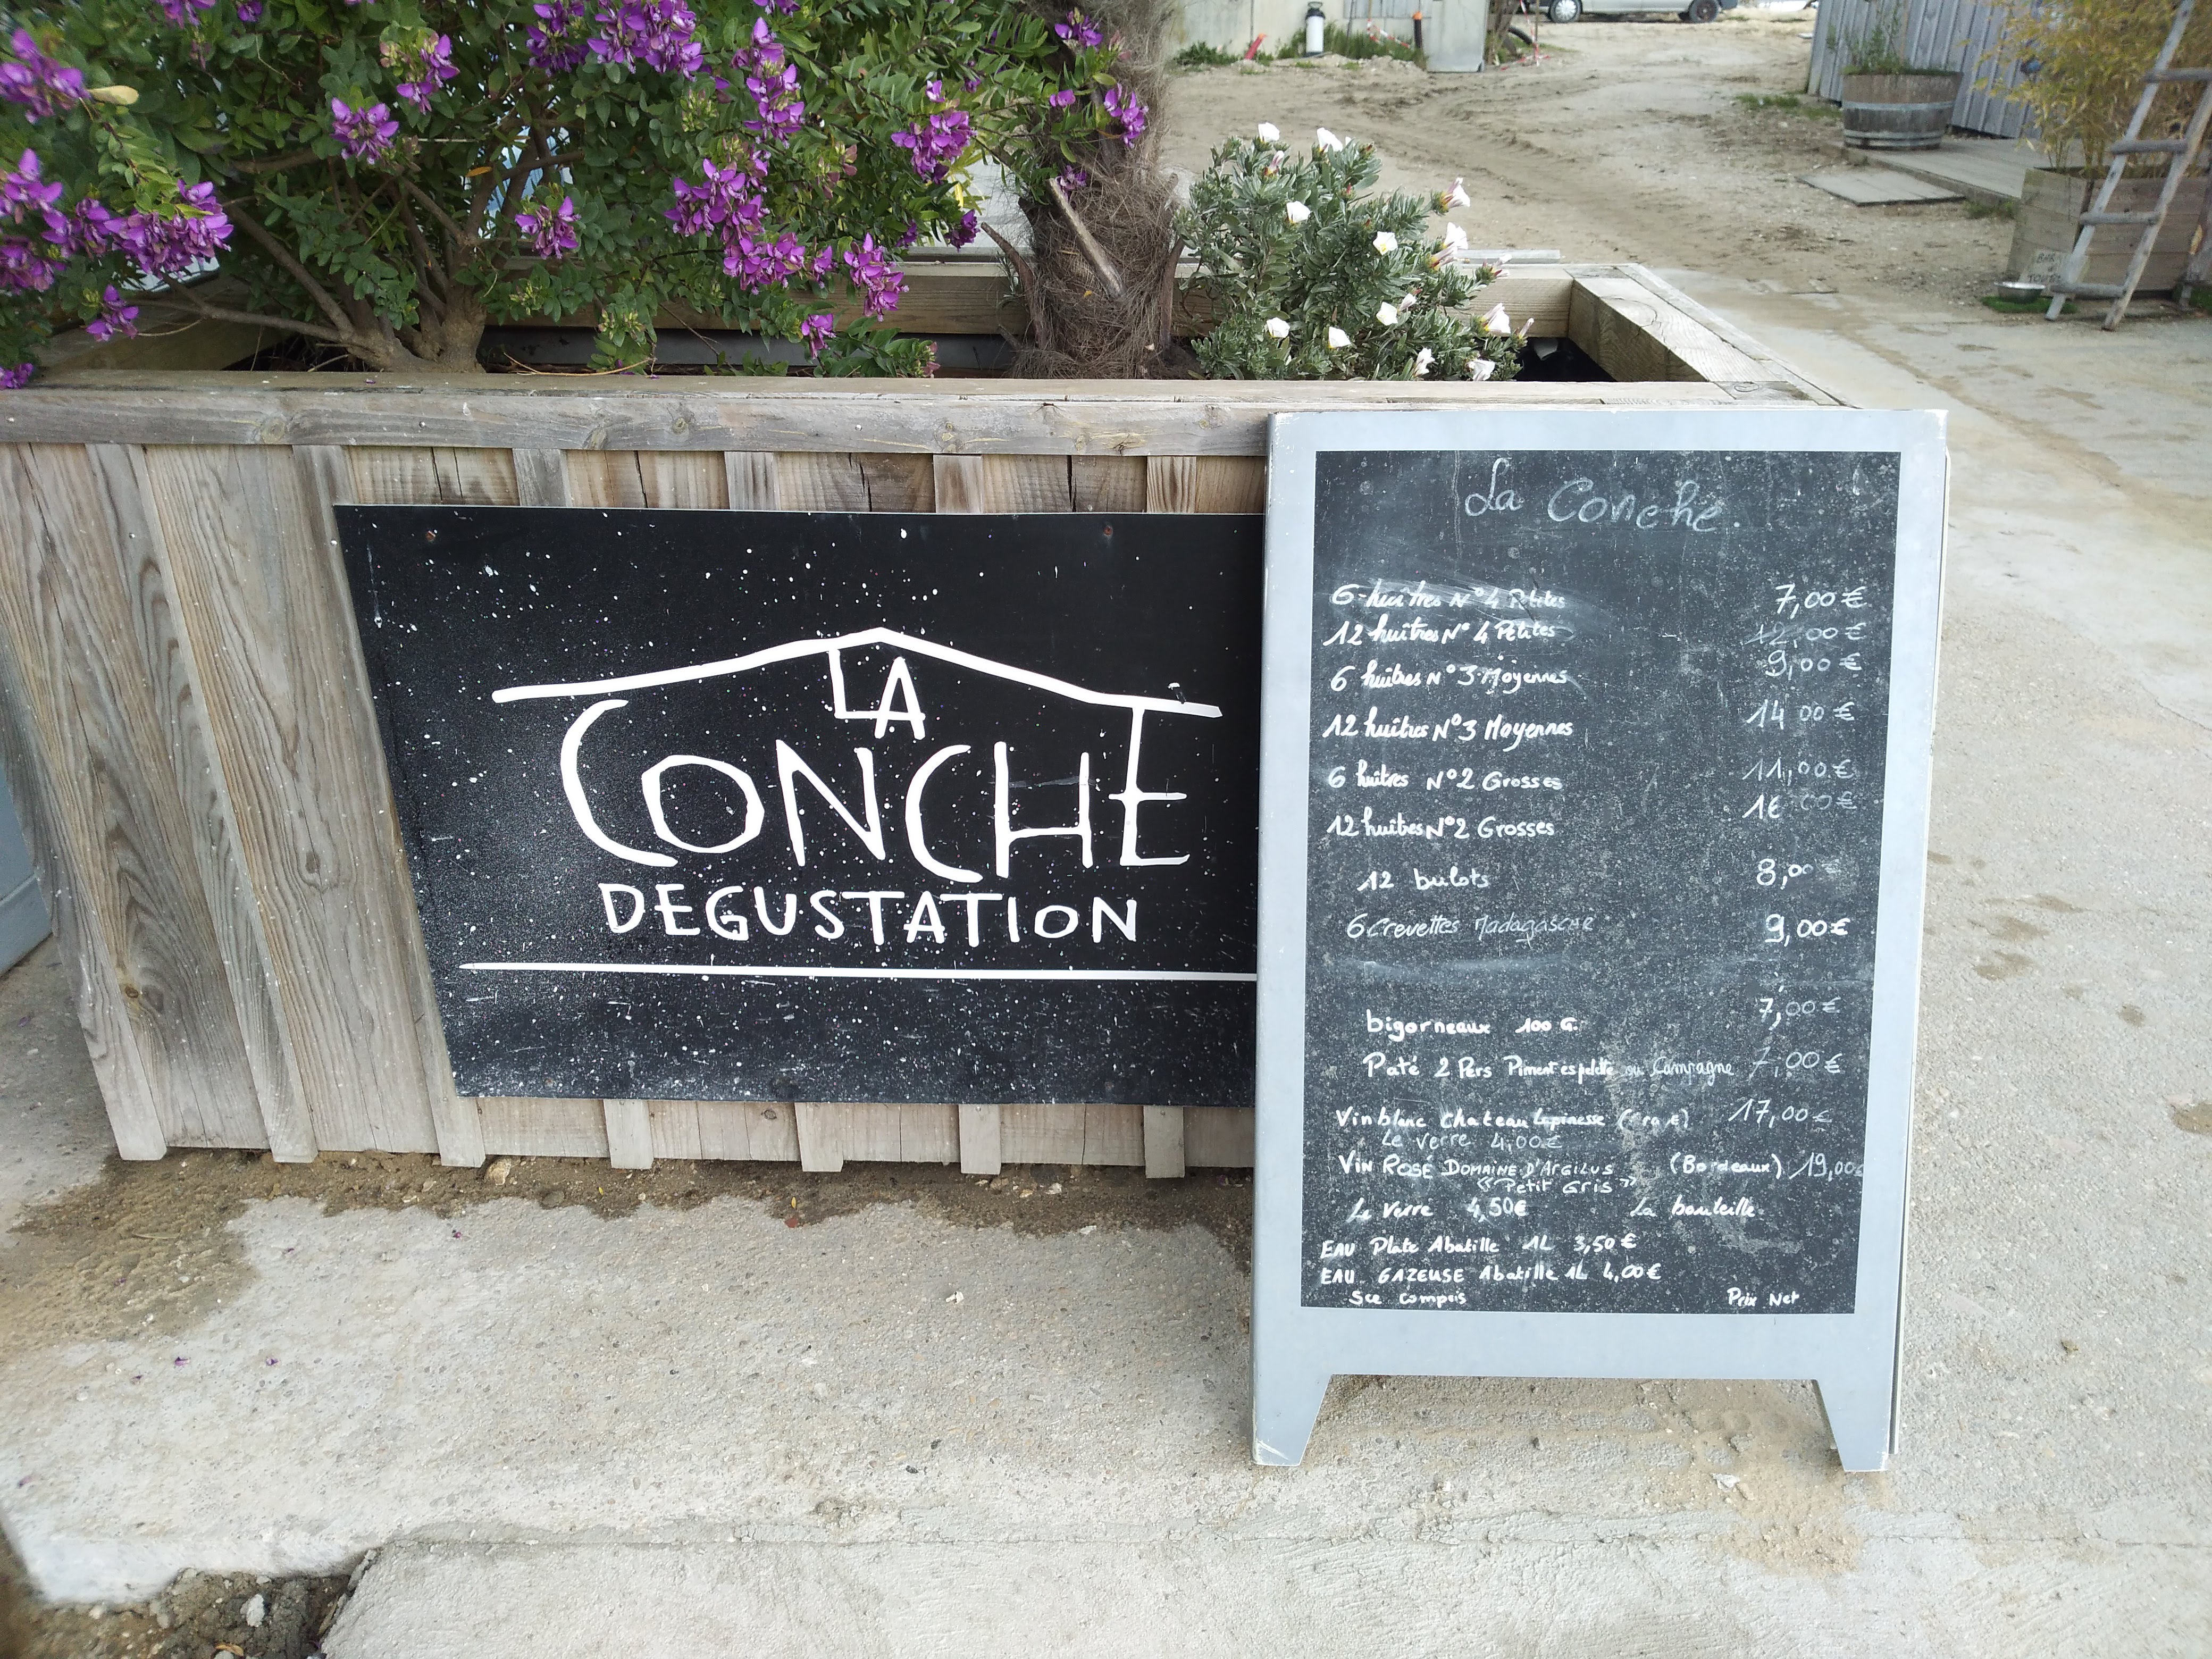 LA
CONCHE
DEGUSTATION
La Conche
6 huîtres N°4 Petites 7,00 €
12 huîtres N° 4 Petites 12,00 €
6 huîtres N° 3 Moyennes 9,00 €
12 huîtres N°3 Moyennes 14 00 €
6 huîtres N°2 Grosses 11,00 €
12 huîtres N°2 Grosses 00 €
12 bulots 8,00
6 crevettes Madagascar 9,00€
bigorneaux 100 G. 7,00€
Paté 2 Pers Piment espelette ou Campagne 7,00€
Vin blanc Chateau 17,00€
Le verre 4,00€
Vin ROSE DOMAINE D'ARGILUS (Bordeaux) 19,00€
"Petit Gris"
Le verre 4,50€ La bouteille
EAU Plate Abatille 1L 3,50€
EAU GAZEUSE Abatille 1L 4,00€
Sce compris Prix Net